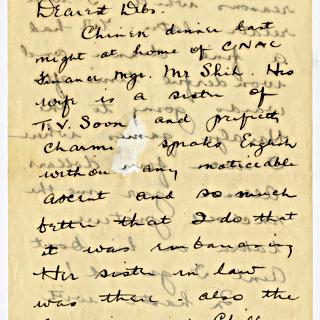 Dearest Deb:
Chinese dinner last
night at home of CNAC
Finance Mgr. Mr Shih. His
wife is a sister of
T. V. Soon and perfectly
charm speaks English
without any noticeable
accent and so much
better that I do that
it was embarrassing
Her sister in law
was there - also the